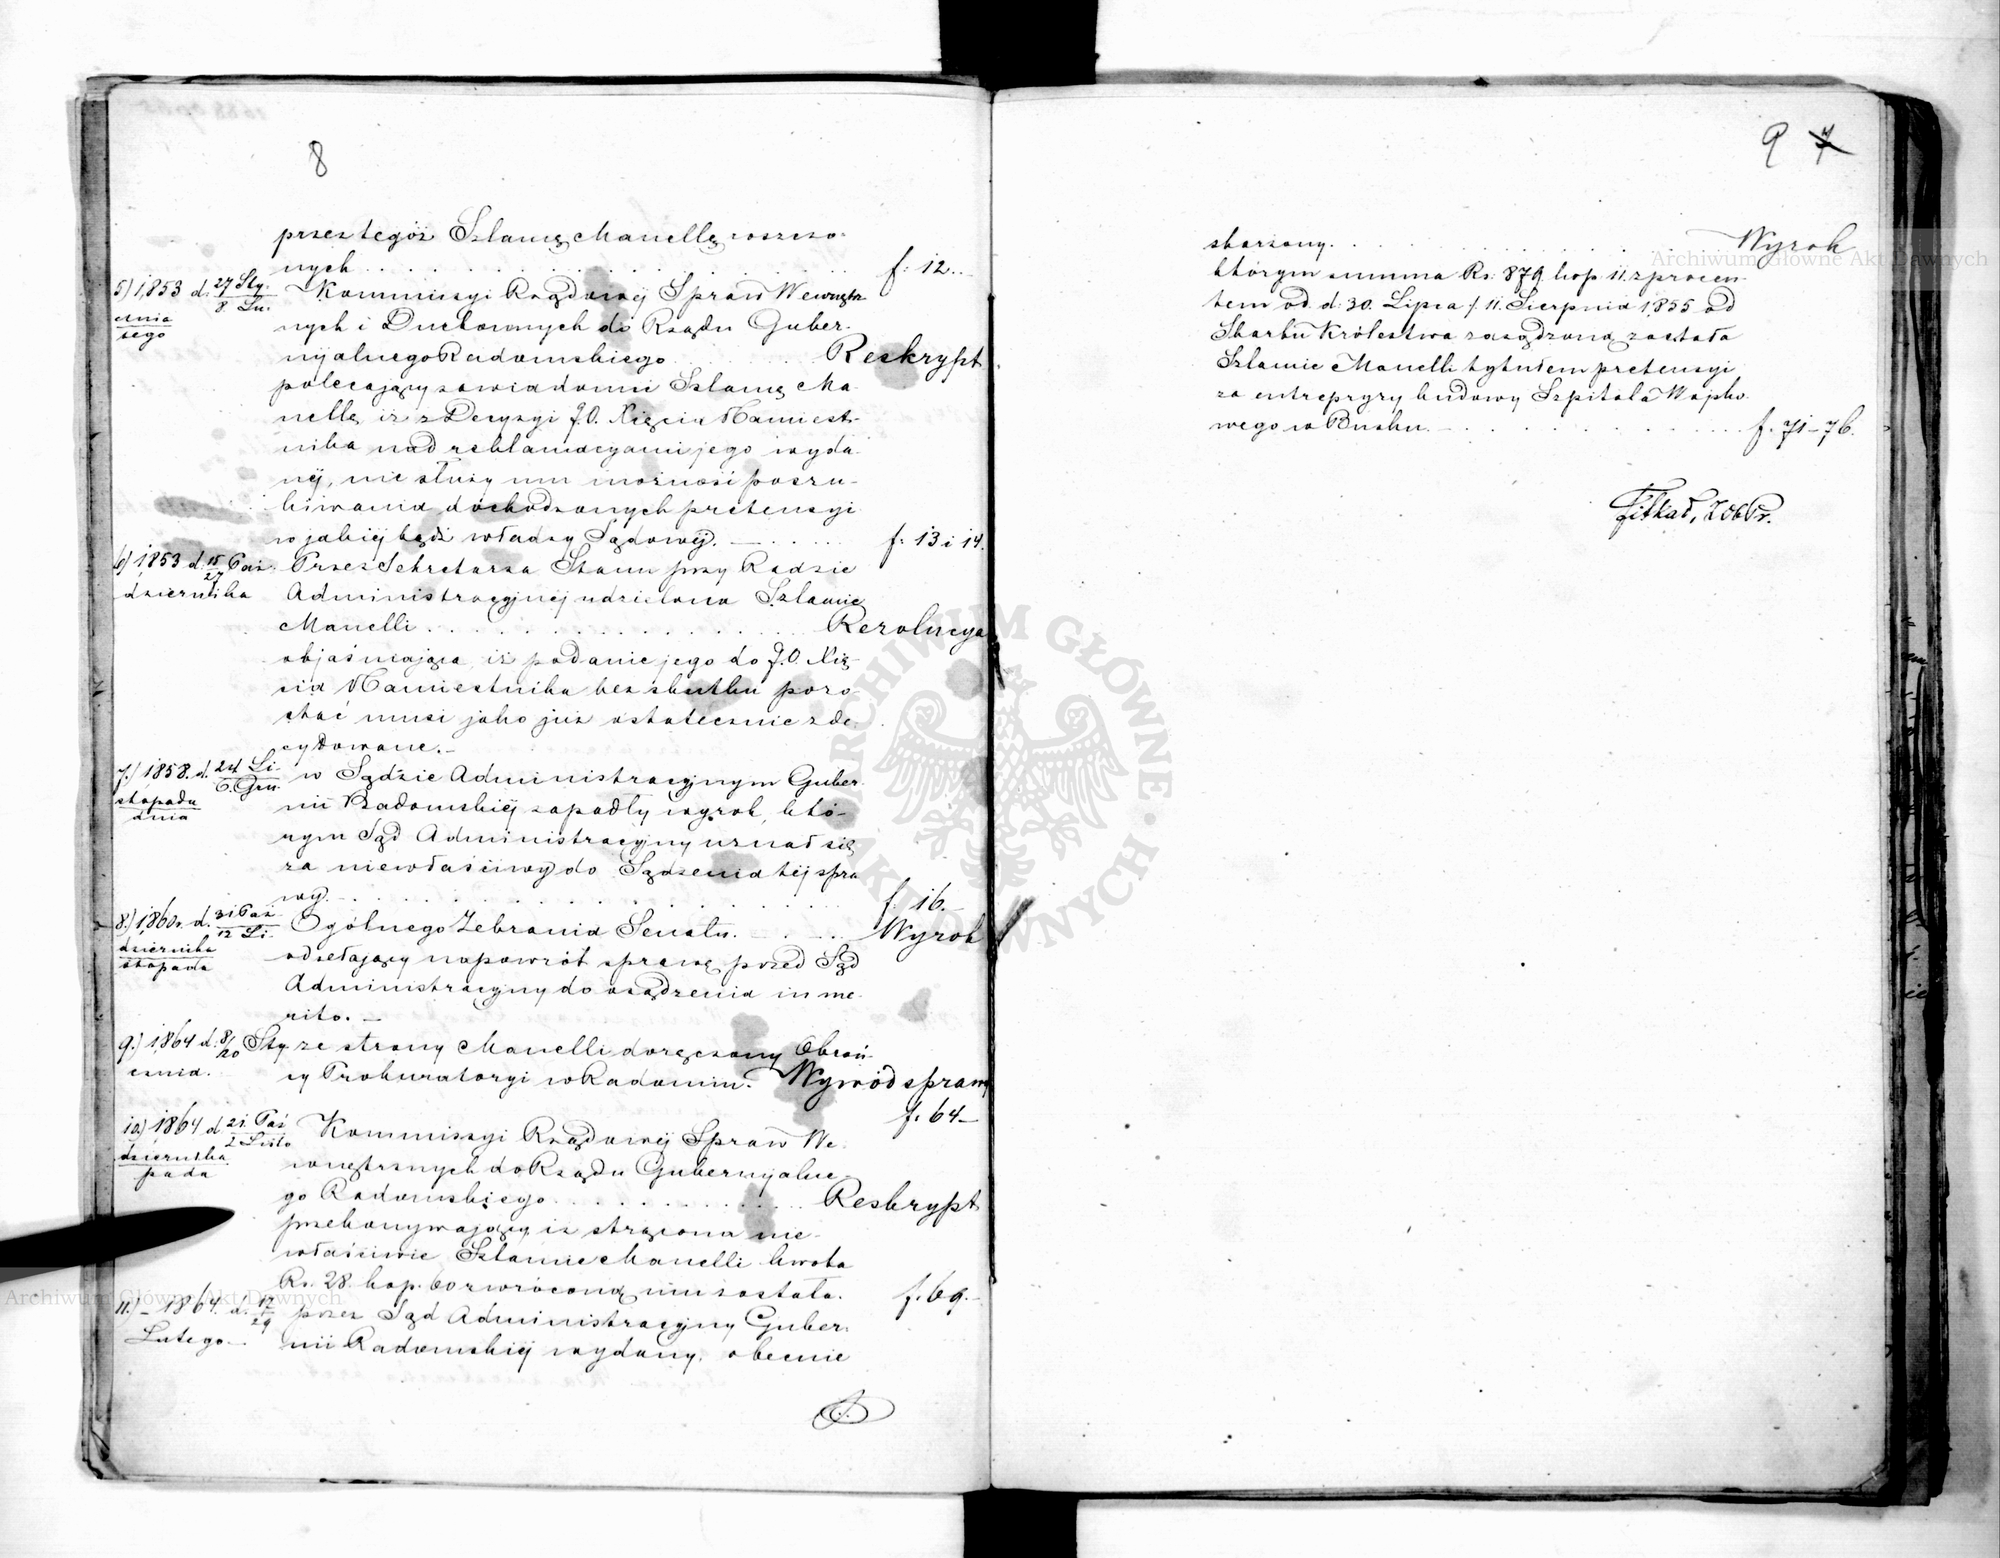 8
przez tegóż Szlamę Manellę roszczo-
nych . . . . . f. 12.
5) 1853 d. 27 Sty-
cznia
8 Lu-
tego
Kommissyi Rządowéj Spraw Wewnętrz-
nych i Duchownych do Rządu Guber-
nijalnego Radomskiego . . . . Reskrypt
polecający zawiadomić Szlamę Ma-
nellę, iż z Decyzyi J.O. Xięcia Namiest-
nika nad reklamacyami jego wyda-
néj, nie służy mu możność poszu-
kiwania dochodzonych pretensyi
w jakiéj bądź władzy Sądowéj. — . . . f. 13 i 14.
6) 1853 d. 15/27 Paź-
dziernika
Przez Sekretarza Stanu przy Radzie
Administracyjnéj udzielona Szlamie
Manelli . . . . . Rezolucya
objaśniająca, iż podanie jego do J.O. Xię-
cia Namiestnika bez skutku pozo-
stać musi jako już ostatecznie zde-
cydowane. —
7.) 1858. d. 24 Li-
stopada
6. Gru-
dnia
w Sądzie Administracyjnym Guber-
nii Radomskiéj zapadły wyrok, któ-
rym Sąd Administracyjny uznał się
za niewłaściwy do Sądzenia téj spra-
wy. — . . . . . f. 16. —
8.) 1860 r. d. 31 Paź-
dziernika
12 Li-
stopada
Ogólnego Zebrania Senatu. — . . . Wyrok
odsełający napowrót sprawę przed Sąd
Administracyjny do osądzenia in me-
rito. —
9.) 1864 d. 8/20 Sty-
cznia.
ze strony Manelli doręczony Obroń-
cy Prokuratoryi w Radomiu. — Wywód sprawy
f. 64 —
10.) 1864 d. 21. Paź-
dziernika
2 Listo-
pada
Kommissyi Rządowéj Spraw We-
wnętrznych do Rządu Gubernijalne-
go Radomskiego . . . . . Reskrypt
przekonywający, iż strącona nie-
właściwie Szlamie Manelli kwota
Rs. 28. kop. 60 zwróconą mu została. f. 69. —
11.) — 1864. d. 17/29
Lutego —
przez Sąd Administracyjny Guber-
nii Radomskiéj wydany, obecnie
9 7
skarżony. . . . . Wyrok
którym summa Rs. 879. kop. 11. z procen-
tem od d. 30. Lipca / 11. Sierpnia 1855 od
Skarbu Królestwa zasądzoną została
Szlamie Manelli tytułem pretensyi
za entrepryzy budowy Szpitala Wojsko-
wego w Busku. — . . . . f. 71–76.
ARCHIWUM GŁÓWNE AKT DAWNYCH
Archiwum Główne Akt Dawnych
Archiwum Główne Akt Dawnych